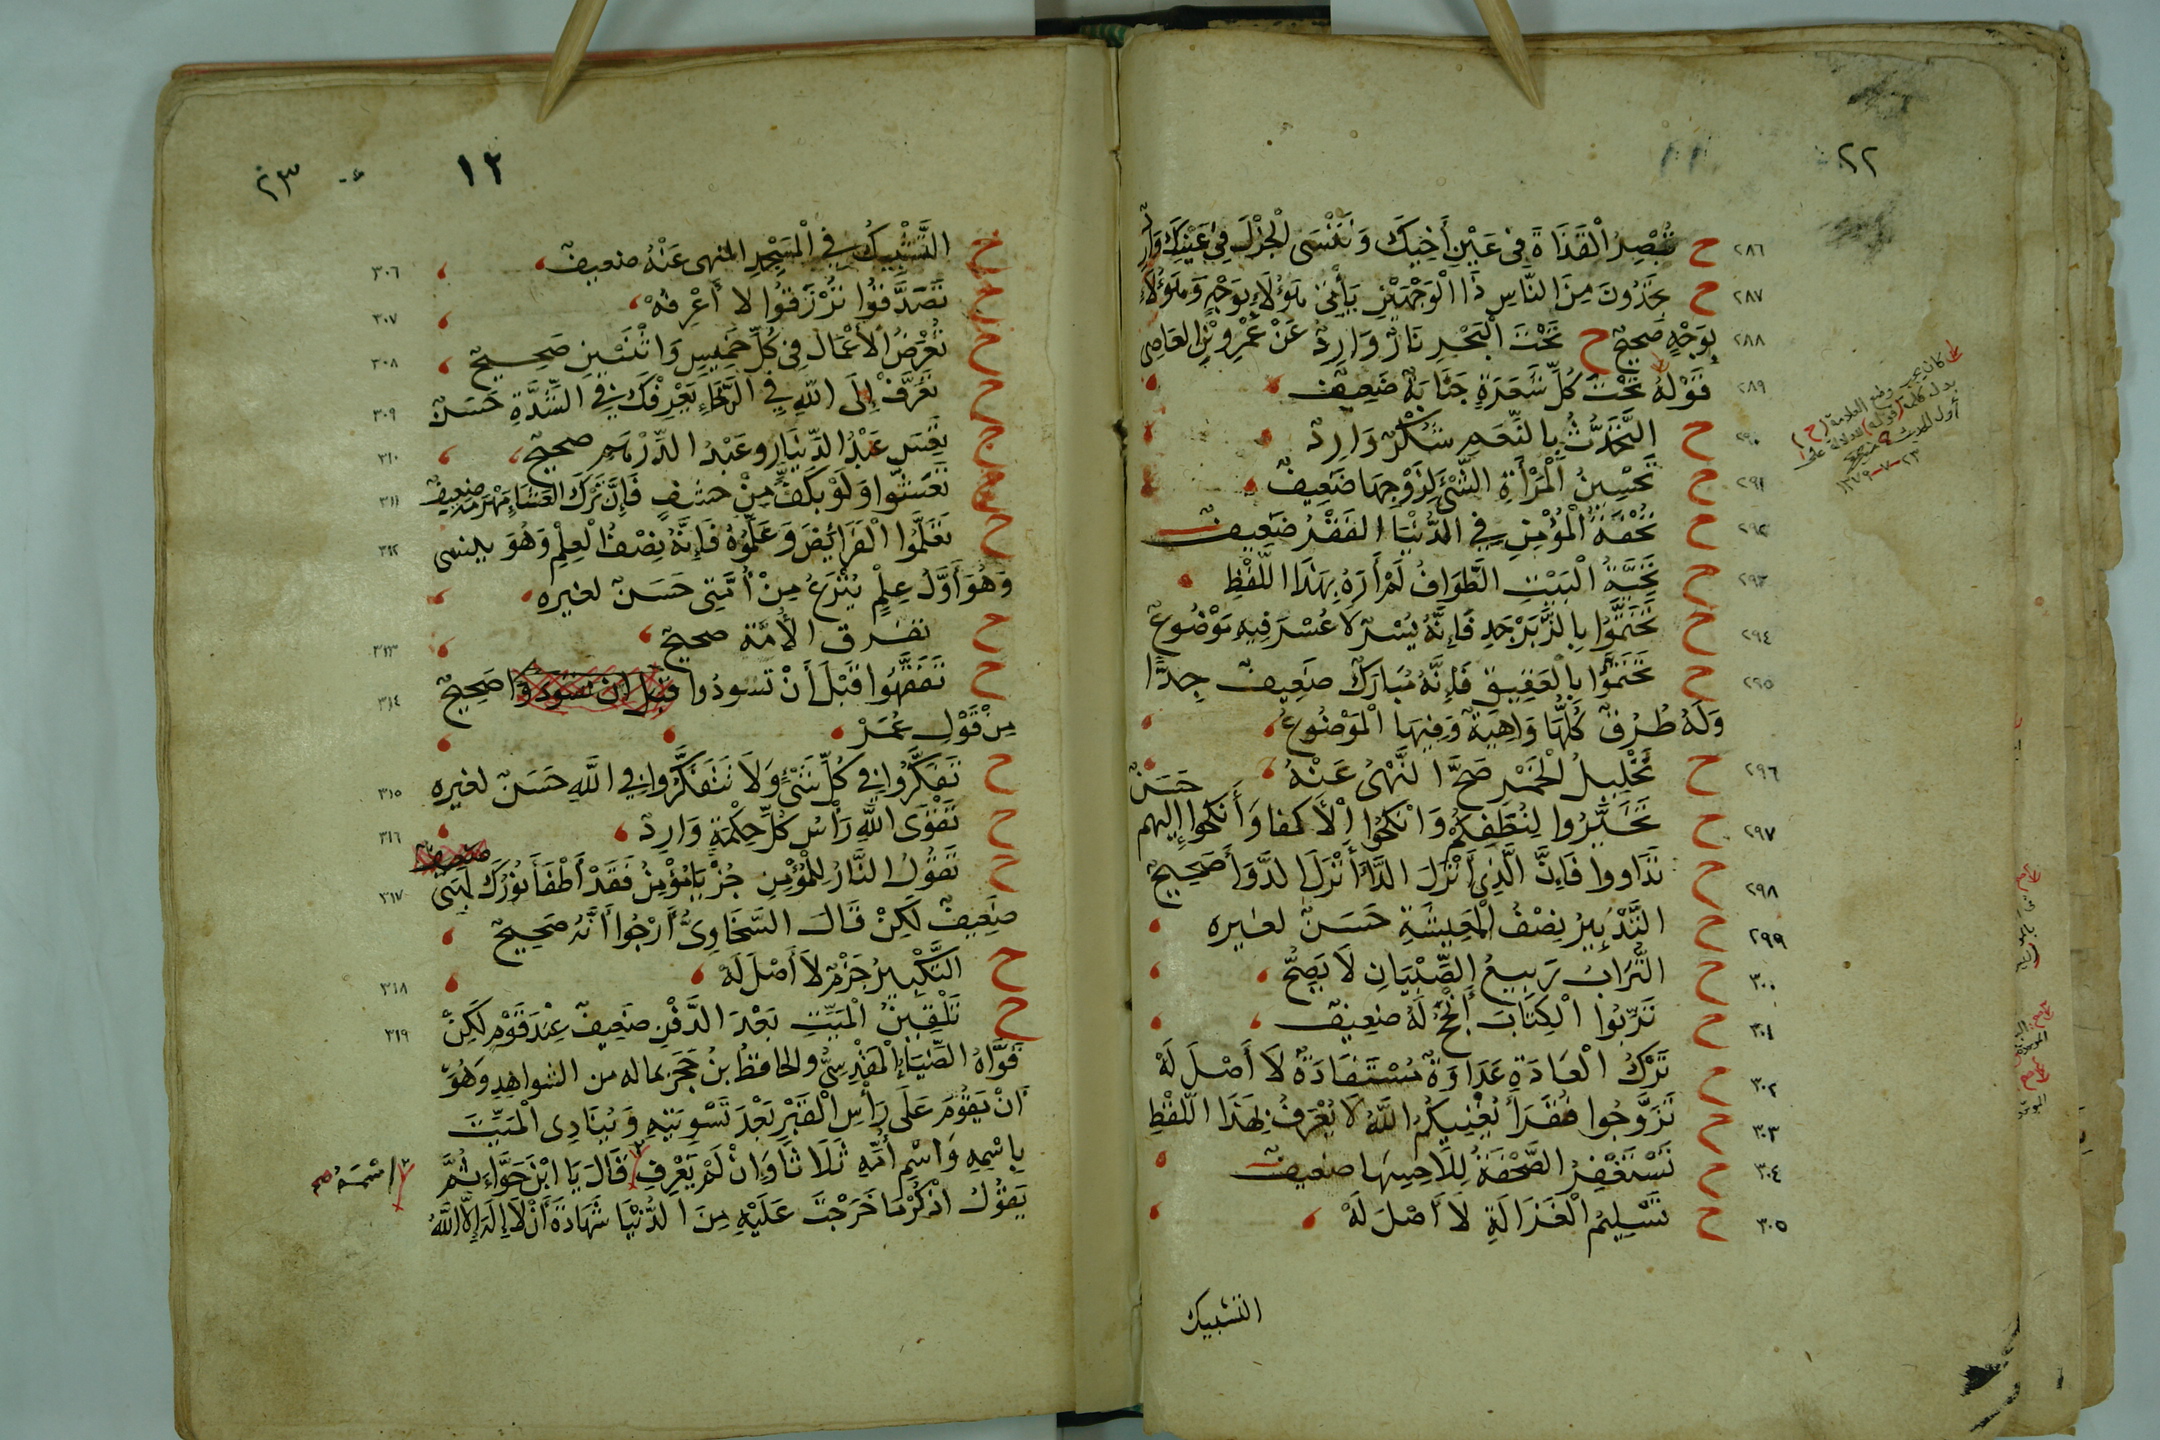 ٢٢
٢٨٦ ح تُبْصِرُ الْقَذَاةَ فِى عَيْنِ أَخِيكَ وَتَنْسَى الْجِذْلَ فِى عَيْنِكَ وَارِدٌ
٢٨٧ ح تَجِدُونَ مِنَ النَّاسِ ذَا الْوَجْهَيْنِ يَأْتِى هَؤُلَاءِ بِوَجْهٍ وَهَؤُلَاءِ
٢٨٨ بِوَجْهٍ صَحِيحٌ ح تَحْتَ الْبَحْرِ نَارٌ وَارِدٌ عَنْ عَمْرِو بْنِ العَاصِ
٢٨٩ قَوْلُهُ تَحْتَ كُلِّ شَعَرَةٍ جَنَابَةٌ ضَعِيفٌ
٢٩٠ ح التَّحَدُّثُ بِالنِّعَمِ شُكْرٌ وَارِدٌ
٢٩١ ح تَحْسِينُ الْمَرْأَةِ الشَّىْءَ لِزَوْجِهَا ضَعِيفٌ
٢٩٢ ح تُحْفَةُ الْمُؤْمِنِ فِى الدُّنْيَا الفَقْرُ ضَعِيفٌ
٢٩٣ ح تَحِيَّةُ الْبَيْتِ الطَّوَافُ لَمْ أَرَهُ بِهَذَا اللَّفْظِ
٢٩٤ ح تَخَتَّمُوا بِالزَّبَرْجَدِ فَإِنَّهُ يُسْرٌ لَا عُسْرَ فِيهِ مَوْضُوعٌ
٢٩٥ ح تَخَتَّمُوا بِالْعَقِيقِ فَإِنَّهُ مُبَارَكٌ ضَعِيفٌ جِدًّا
وَلَهُ طُرُقٌ كُلُّهَا وَاهِيَةٌ وَفِيهَا الْمَوْضُوعُ
٢٩٦ ح تَخْلِيلُ الْخَمْرِ صَحَّ النَّهْىُ عَنْهُ
٢٩٧ ح تَخَيَّرُوا لِنُطَفِكُمْ وَانْكَحُوا الْأَكفا وَأَنكحوا إليهم حَسَنٌ
٢٩٨ ح تَدَاووا فَإِنَّ الَّذِى أَنْزَلَ الدَّاءَ أَنْزَلَ الدَّوَا صَحِيحٌ
٢٩٩ ح التَّدْبِيرُ نِصْفُ الْمَعِيشَةِ حَسَنٌ لغيره
٣٠٠ ح التُّرَابُ رَبِيعُ الصِّبْيَانِ لَا يَصِحُّ
٣٠١ ح تَرِّبُوا الْكِتَابَ أَنْجَحُ لَهُ ضعِيفٌ
٣٠٢ ح تَرْكُ الْعَادَةِ عَدَاوَةٌ مُسْتَفَادَةٌ لَا أَصْلَ لَهُ
٣٠٣ ح تَزَوَّجُوا فُقَرَاءَ يُغْنِيكُمُ اللَّهُ لَا يُعْرَفُ بِهَذَا اللَّفْظِ
٣٠٤ ح تَسْتَغْفِرُ الصَّحْفَةُ لِلَاحِسِهَا ضعيف
٣٠٥ ح تَسْلِيمُ الْغَزَالَةِ لَا أَصْلَ لَهُ
التشبيك
كان يجب وضع العلامة (ح)
بدل كلمة (قوله) للدلالة على
أول الحديث
٢٣-٧-١٣٧٩
٢٣
١٢
ح التَّشْبِيكُ فِى الْمَسْجِدِ المنهى عَنْهُ ضعيفٌ ٣٠٦
ح تَصَدَّقُوا تُرْزَقُوا لا أَعْرِفُهُ ٣٠٧
ح تُعْرَضُ الْأَعْمَالُ فِى كُلِّ خَمِيسٍ وَاثْنَيْنِ صَحِيحٌ ٣٠٨
ح تَعَرَّفْ إِلَى اللهِ فِى الرَّخَاءِ يَعْرِفْكَ فِى الشِّدَّةِ حَسَنٌ ٣٠٩
ح تَعِسَ عَبْدُ الدِّينَارِ وعَبْدُ الدِّرْهَمِ صحيحٌ ٣١٠
ح تَعَشَّوا وَلَوْ بِكَفٍّ مِنْ حَشَفٍ فَإِنَّ تَرْكَ العَشَاءِ مَهْرَمَةٌ ضعيفٌ ٣١١
ح تَعَلَّمُوا الْفَرَائِضَ وَعَلِّمُوهُ فَإِنَّهُ نِصْفُ الْعِلْمِ وَهُوَ ينسى ٣١٢
وَهُوَ أَوَّلُ عِلْمٍ يُنْزَعُ مِنْ أُمَّتِى حَسَنٌ لغيره
ح تفرق الأُمَّة صحيح ٣١٣
ح تَفَقَّهُوا قَبْلَ أَنْ تسودُوا قبل ان تسودوا صَحِيحٌ ٣١٤
مِنْ قَوْلِ عُمَرْ
ح تَفَكَّرُوا فِى كُلِّ شَىْءٍ وَلَا تَتَفَكَّرُوا فِى اللَّهِ حَسَنٌ لغيره ٣١٥
ح تَقْوَى اللَّهِ رَأْسُ كُلِّ حِكْمَةٍ وَارِدٌ ٣١٦
ح تَقُولُ النَّارُ لِلْمُؤْمِنِ جُزْ يَا مُؤْمِنُ فَقَدْ أَطْفَأَ نُورُكَ لَهَبِى ٣١٧
ضَعِيفٌ لَكِنْ قَالَ السَّخَاوِىُّ أَرْجُوا أَنَّهُ صَحِيحٌ
ح التَّكْبِيرُ جَزْمٌ لَا أَصْلَ لَهُ ٣١٨
ح تَلْقِينُ الْمَيِّتِ بَعْدَ الدَّفْنِ ضَعِيفٌ عِنْدَ قَوْمٍ لَكِنْ ٣١٩
قَوَّاهُ الضِّيَاءُ الْمَقْدِسِىُّ والحَافِظُ بنُ حَجَرٍ بما له من الشواهدِ وَهُوَ
أَنْ يَقُومَ عَلَى رَأْسِ الْقَبْرِ بَعْدَ تَسْوِيَتِهِ وَيُنَادِى الْمَيِّتَ
بِاسْمِهِ وَاسْمِ أُمِّهِ ثَلَاثًا وَإِنْ لَمْ يَعْرِفِ قَالَ يَا ابْنَ حَوَّاءَ ثُمَّ
اسْمَهُ صح
يَقُولُ اذْكُرْ مَا خَرَجْتَ عَلَيْهِ مِنَ الدُّنْيَا شَهَادَةَ أَنْ لَا إِلَهَ إِلَّا اللَّهُ